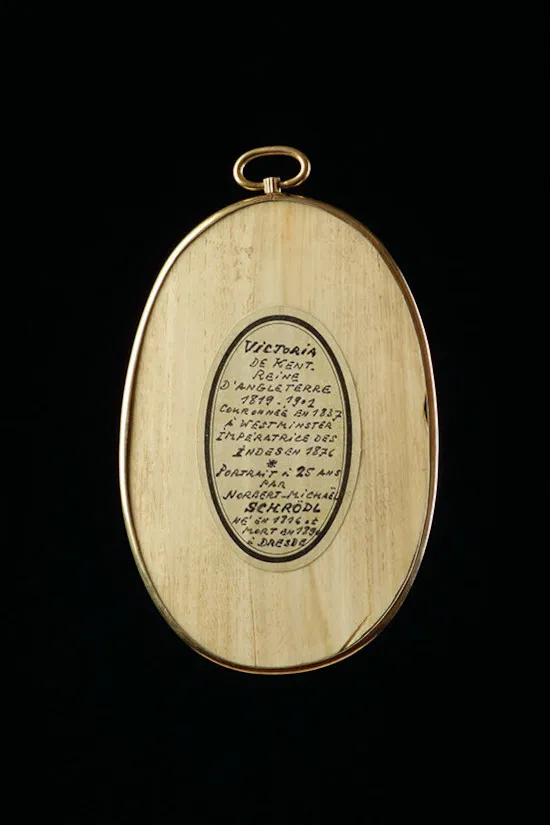 VICTORIA
DE KENT.
REINE
D'ANGLETERRE
1819-1901
COURONNÉE EN 1837
À WESTMINSTER
IMPÉRATRICE DES
INDES EN 1876
*
PORTRAIT À 25 ANS
PAR
NORBERT-MICHAËL
SCHRÖDL
NÉ EN 1816 et
MORT EN 1890
à DRESDE